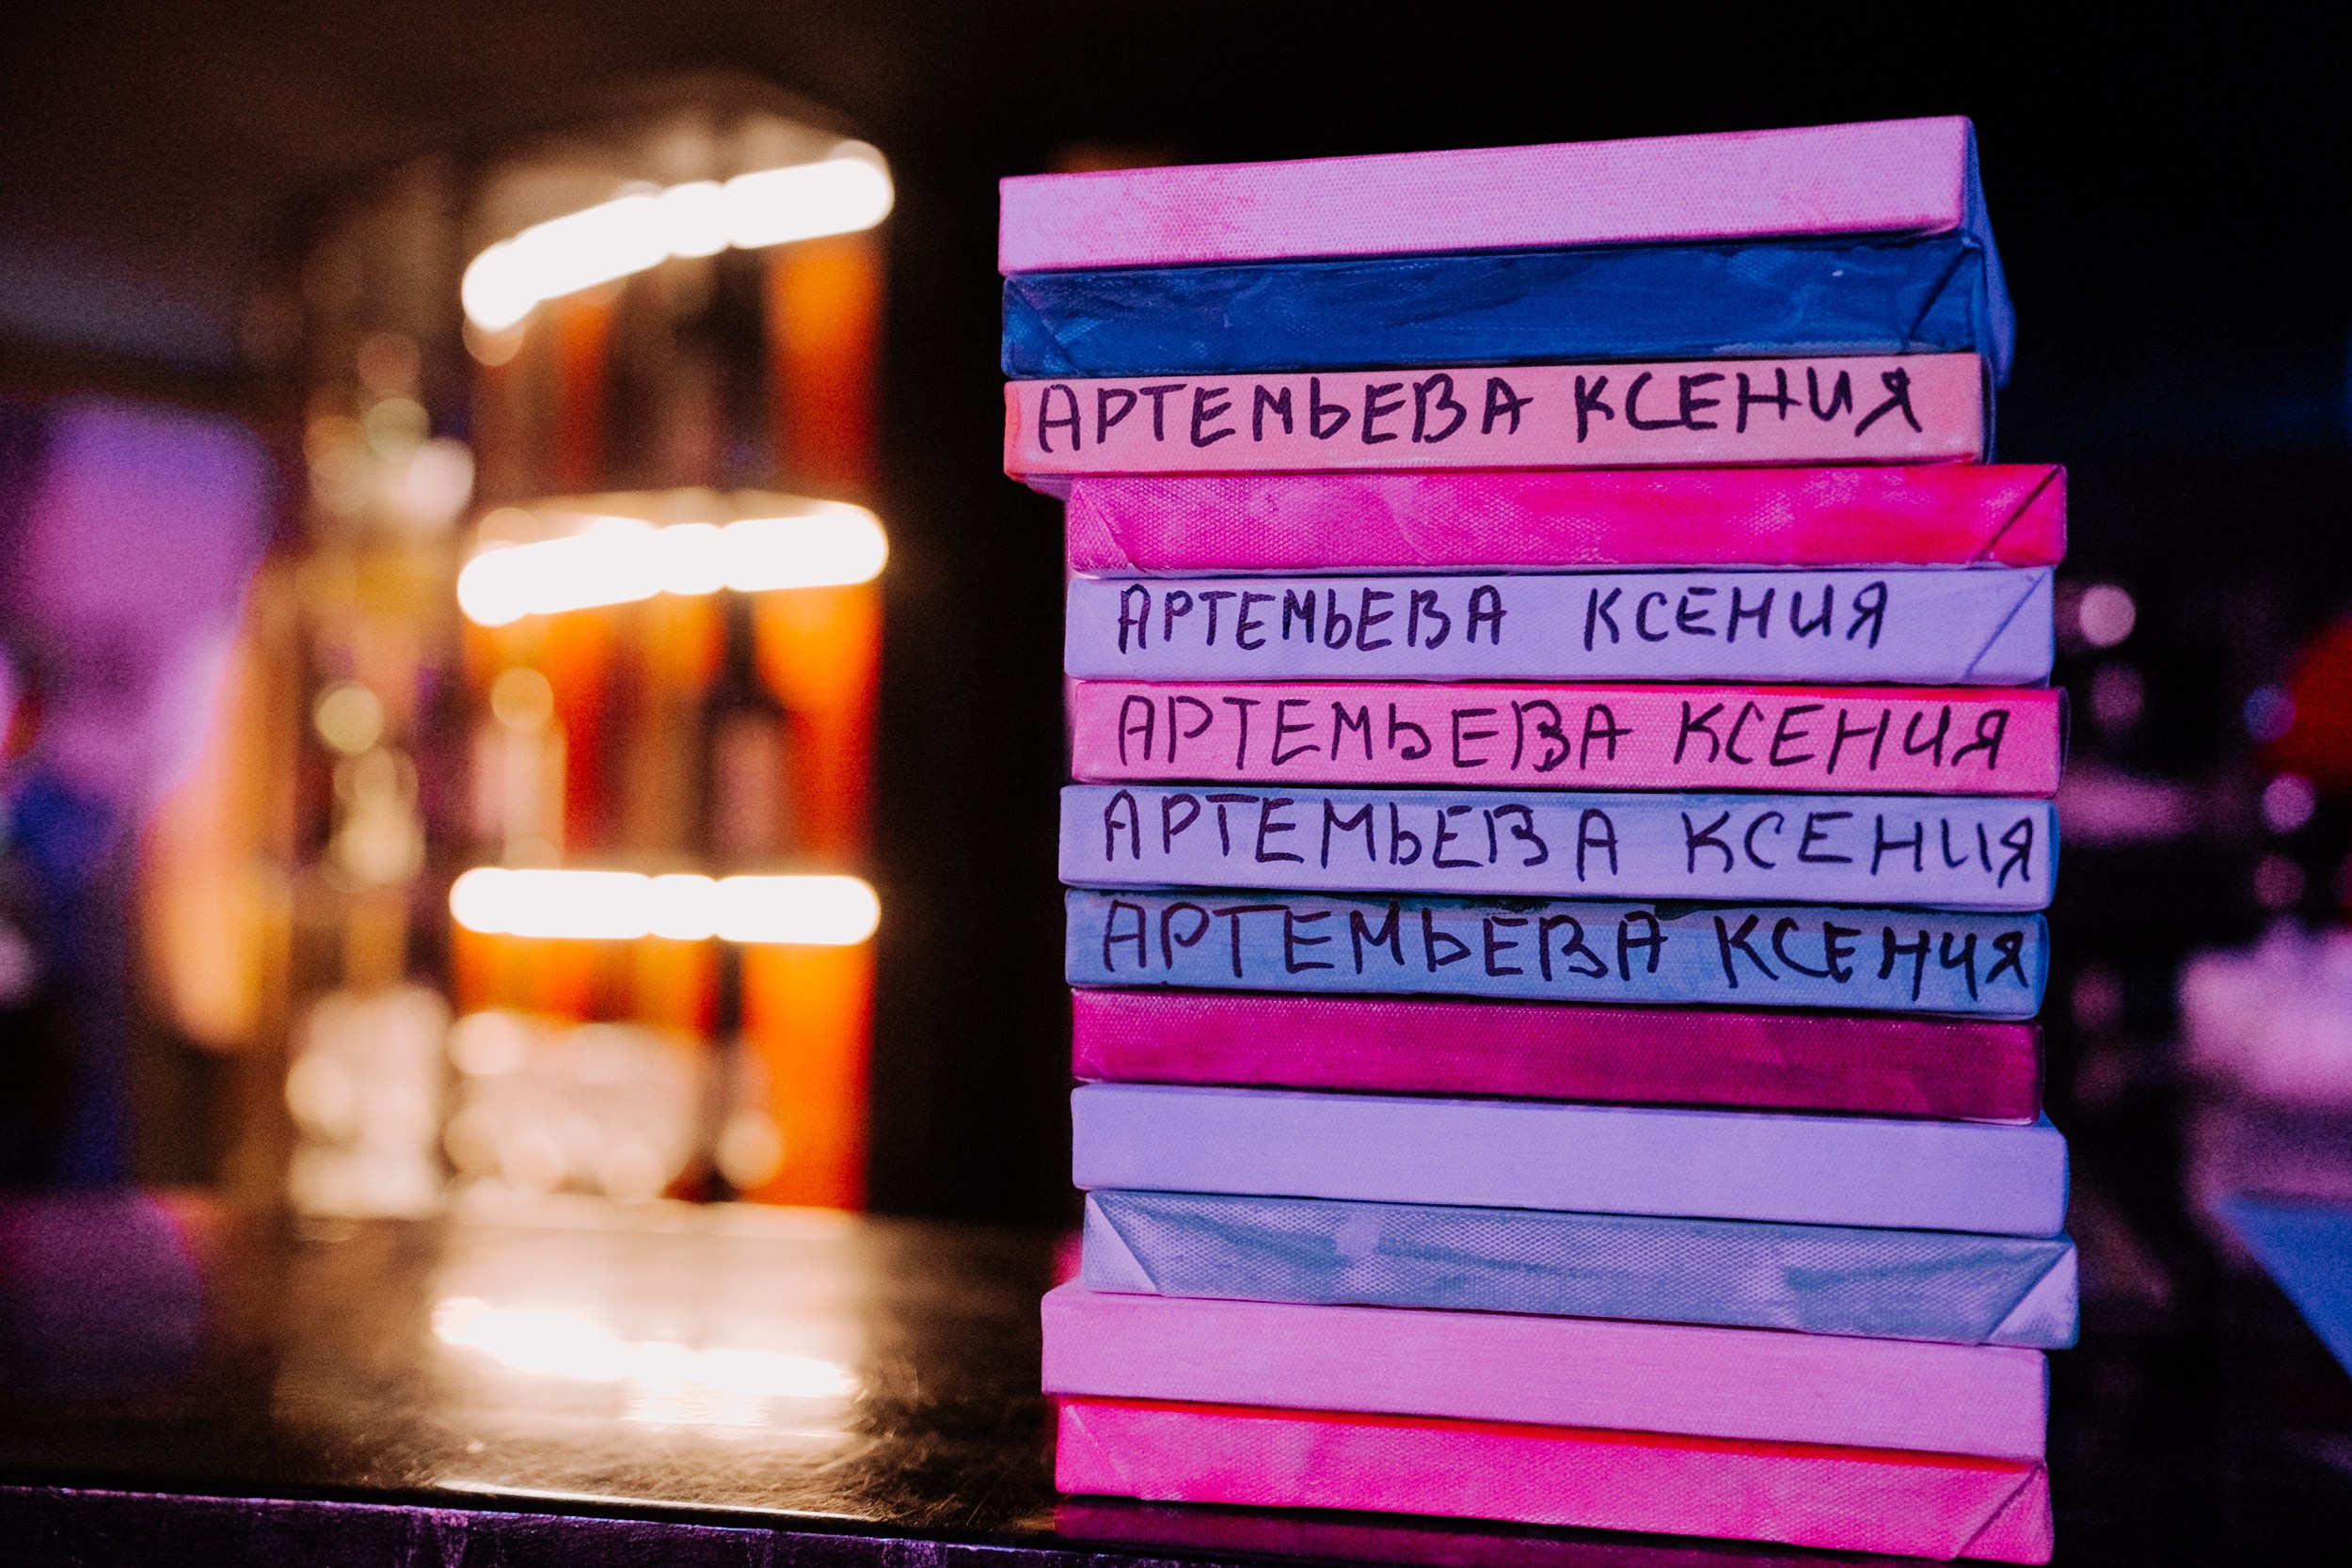 АРТЕМЬЕВА КСЕНИЯ
АРТЕМЬЕВА КСЕНИЯ
АРТЕМЬЕВА КСЕНИЯ
АРТЕМЬЕВА КСЕНИЯ
АРТЕМЬЕВА КСЕНИЯ